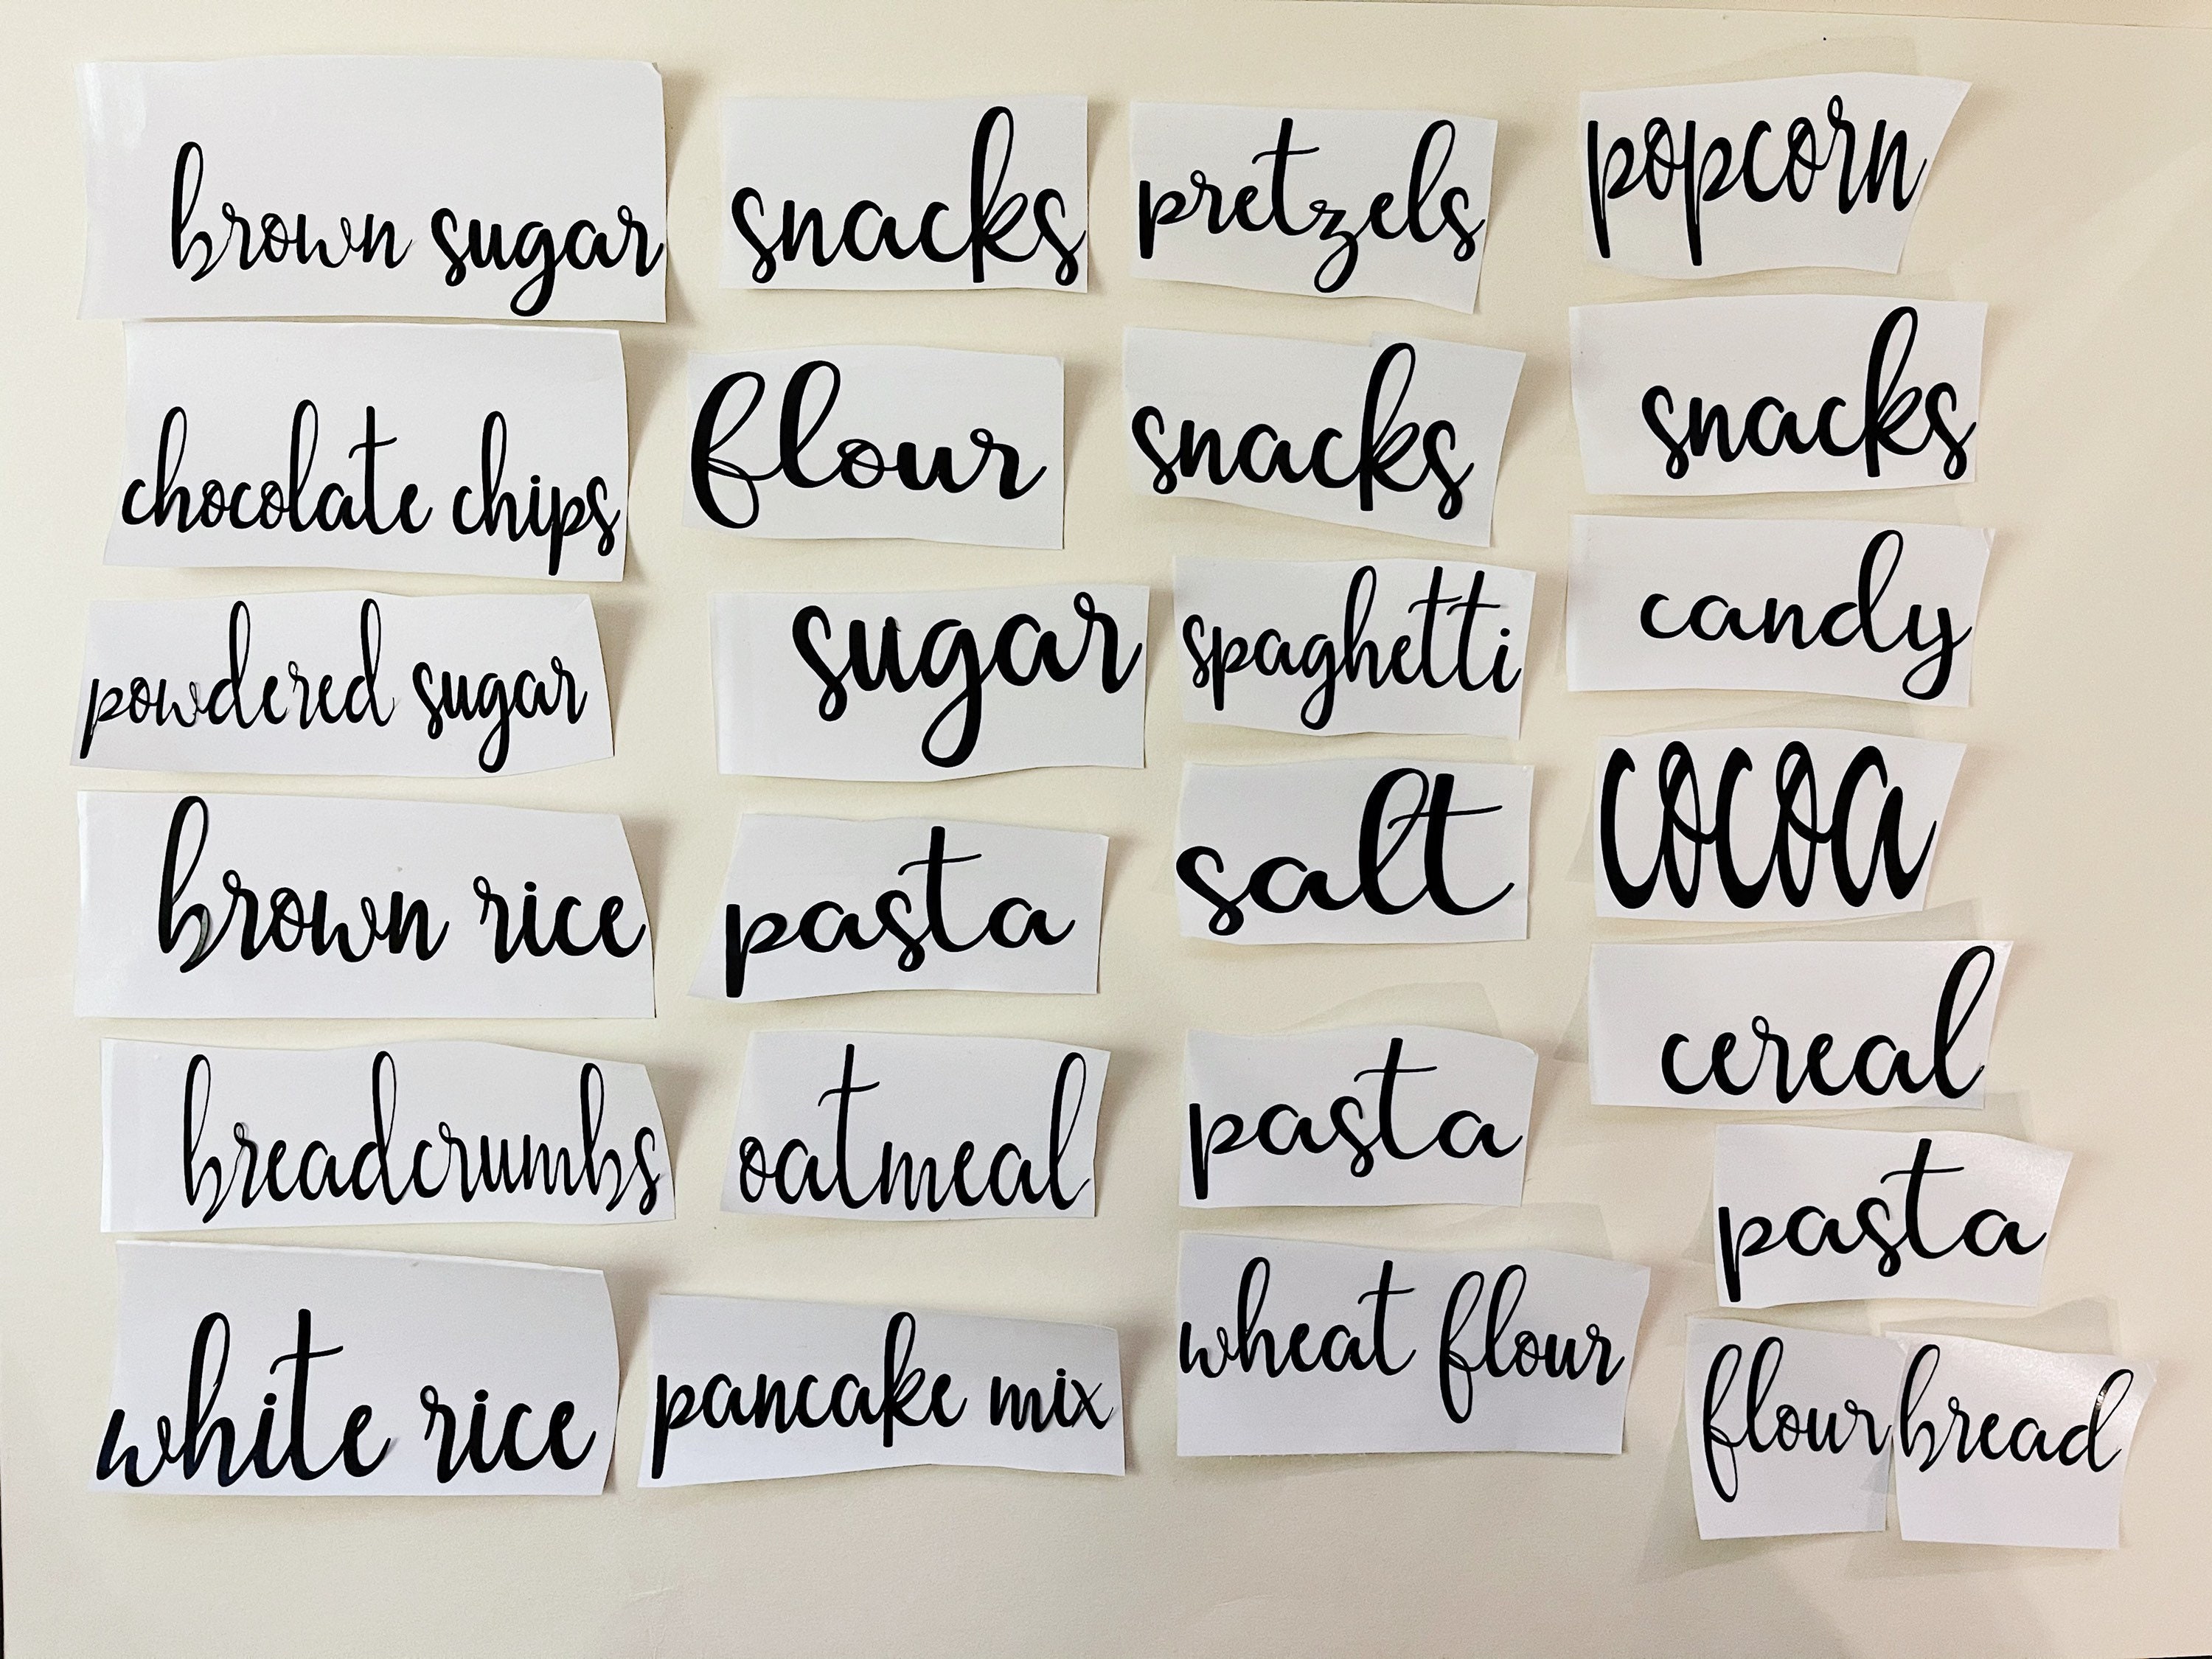 brown sugar
chocolate chips
powdered sugar
brown rice
breadcrumbs
white rice
snacks
flour
sugar
pasta
oatmeal
pancake mix
pretzels
snacks
spaghetti
salt
pasta
wheat flour
popcorn
snacks
candy
cocoa
cereal
pasta
flour
bread